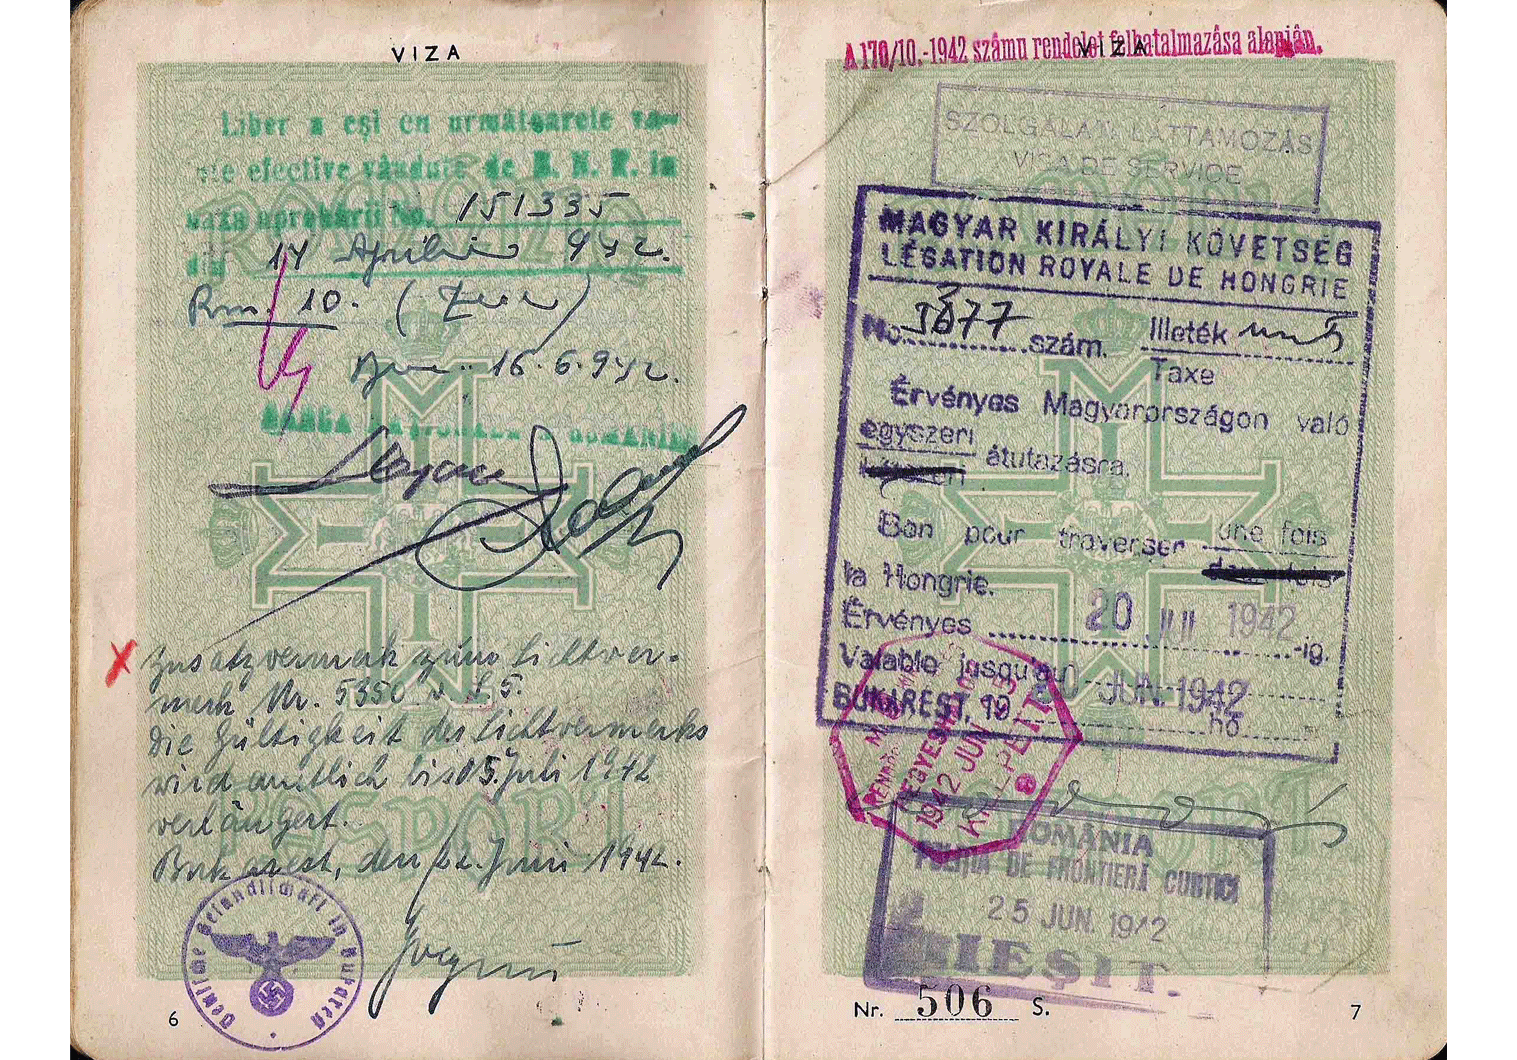 VIZA
Liber a eşi cu urmâtoarele va-
ute efective vândute de B. N. R. în
baza aprobării No. 151335
din 14 Aprilie 942.
Rm. 10. (Zece)
16.6.942.
BANCA NAŢIONALĂ A ROMÂNIEI
X Zusatzvermerk zum Sichtver-
merk Nr. 5350
die Gültigkeit des Sichtvermerks
wird amtlich bis 05. Juli 1942
verlängert.
Bukarest, den 22. Juni 1942.
Deutsche Gesandtschaft in Bukarest
6
A 170/10.-1942 számu rendelet felhatalmazása alapján.
VIZA
SZOLGÁLATI LÁTTAMOZÁS
VISA DE SERVICE
MAGYAR KIRÁLYI KÖVETSÉG
LÉGATION ROYALE DE HONGRIE
No. 3877 szám. Illeték
Taxe
Érvényes Magyarországon való
egyszeri
kétszeri átutazásra.
Bon pour traverser une fois
deux fois
la Hongrie.
Érvényes 20 JUL 1942 -ig.
Valable jusqu'au
BUKAREST, 19 20 JUN. 1942 hó
1942 JUN
KILÉPETT
ROMÂNIA
POLIŢIA DE FRONTIERĂ CURTICI
25 JUN. 1942
IEŞIT.
Nr. 506 S.
7